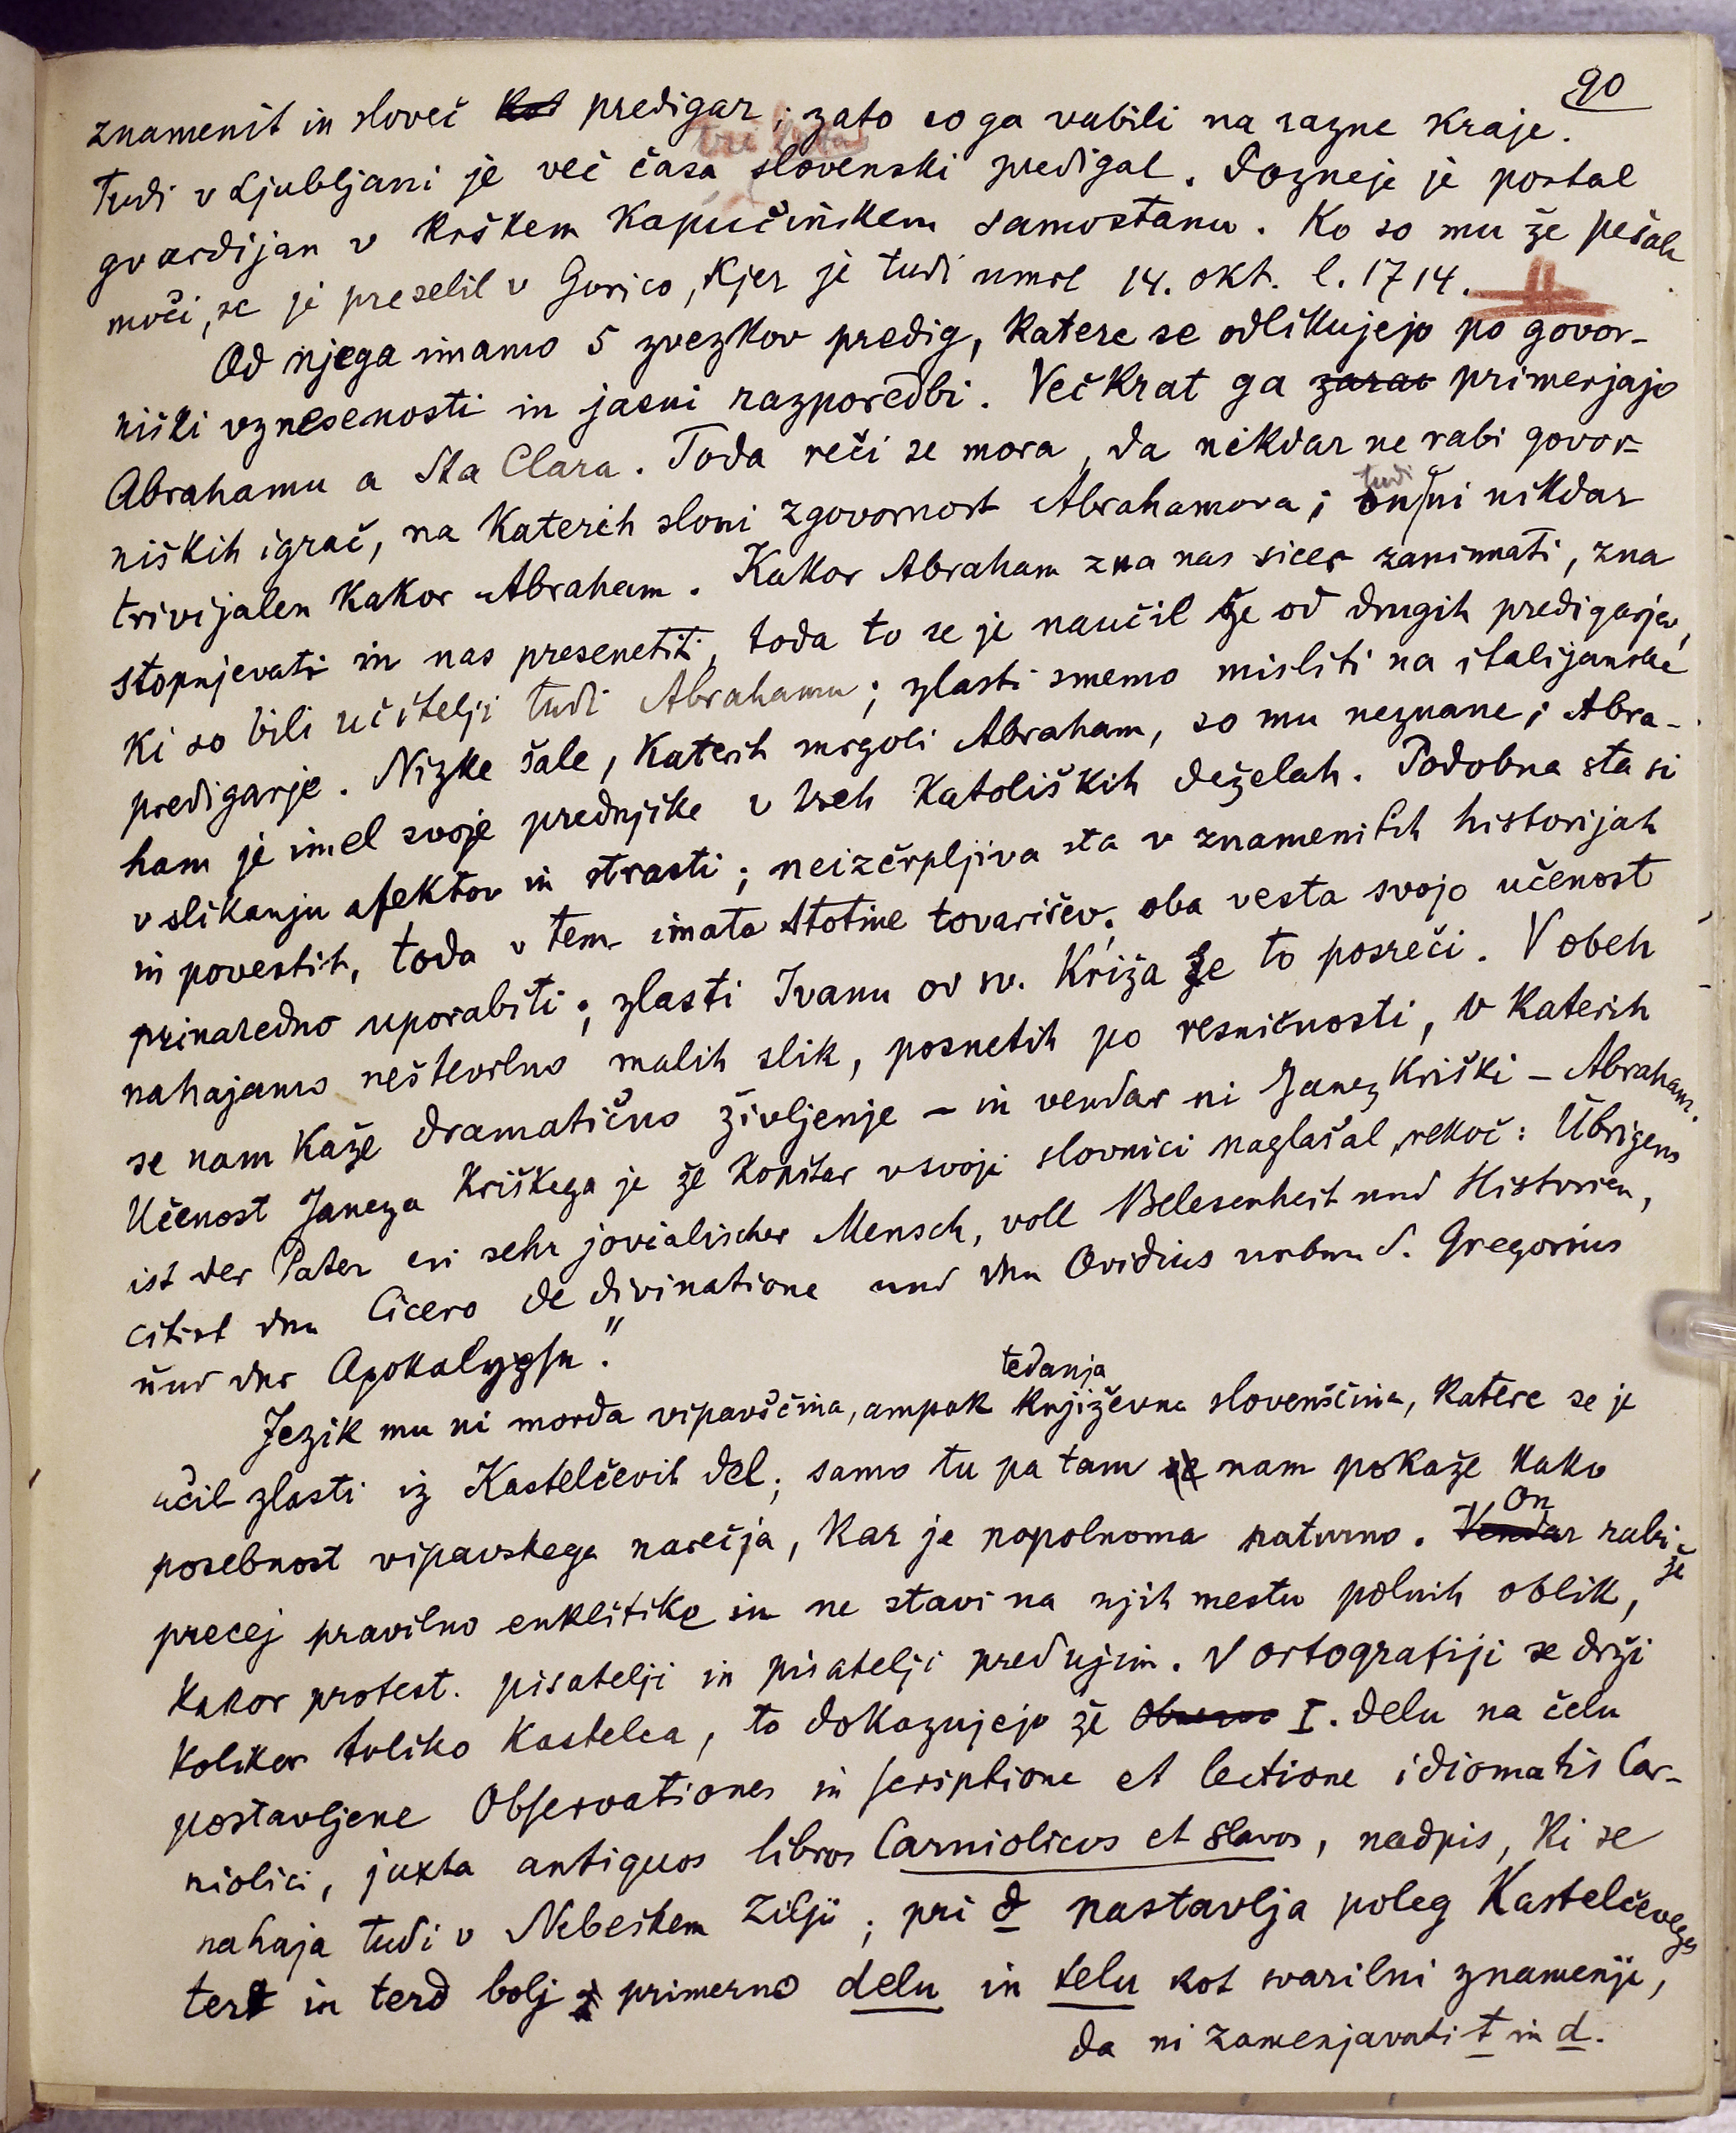 90
znamenit in sloveč kot predigar; zato so ga vabili na razne kraje.
Tudi v Ljubljani je več časa slovenski predigal. Pozneje je postal
gvardijan v krškem kapucinskem samostanu. Ko so mu že pešale
moči, se je preselil v Gorico, kjer je tudi umrl 14. okt. l. 1714.
Od njega imamo 5 zvezkov predig, katere se odlikujejo po govor-
niški vznesenosti in jasni razporedbi. Večkrat ga zarao primerjajo
Abrahamu a Sta Clara. Toda reči se mora, da nikdar ne rabi govor-
niških igrač, na katerih sloni zgovornost Abrahamova; on tudi ni nikdar
trivijalen kakor Abraham. Kakor Abraham zna nas sicer zanimati, zna
stopnjevati in nas presenetiti, toda to se je naučil že od drugih predigarjev,
ki so bili učitelji tudi Abrahamu; zlasti smemo misliti na italijanske
predigarje. Nizke šale, katerih mrgoli Abraham, so mu neznane; Abra-
ham je imel svoje prednjike v vseh katoliških deželah. Podobna sta si
v slikanju afektov in strasti; neizčrpljiva sta v znamenitih historijah
in povestih, toda v tem imata stotine tovarišev; oba vesta svojo učenost
prinaredno uporabiti; zlasti Ivanu od sv. Križa se to posreči. V obeh
nahajamo neštevilno malih slik, posnetih po resničnosti, v katerih
se nam kaže dramatično življenje – in vendar ni Janez Kriški – Abraham.
Učenost Janeza Kriškega je že Kopitar v svoji slovnici naglašal, rekoč: Übrigens
ist der Pater ein sehr jovialischer Mensch, voll Belesenheit und Historien,
citirt den Cicero de divinatione und den Ovidius neben S. Gregorius
und der Apokalypse."
Jezik mu ni morda vipavščina, ampak tedanja književna slovenščina, katere se je
učil zlasti iz Kastelčevih del; samo tu pa tam se nam pokaže kaka
posebnost vipavskega narečja, kar je popolnoma naturno. Vendar On rabi že
precej pravilno enklitike in ne stavi na njih mestu polnih oblik,
kakor protest. pisatelji in pisatelji pred njim. V ortografiji se drži
kolikor toliko Kastelca, to dokazujejo že I. delu na čelu
postavljene Observationes in scriptione et lectione idiomatis Car-
niolici, juxta antiquos libros Carniolicos et slavos, nadpis, ki se
nahaja tudi v Nebeškem Zilji; pri d nastavlja poleg Kastelčevega
tert in terd bolj primerno delu in telu kot svarilni znamenji,
da ni zamenjavati t in d.